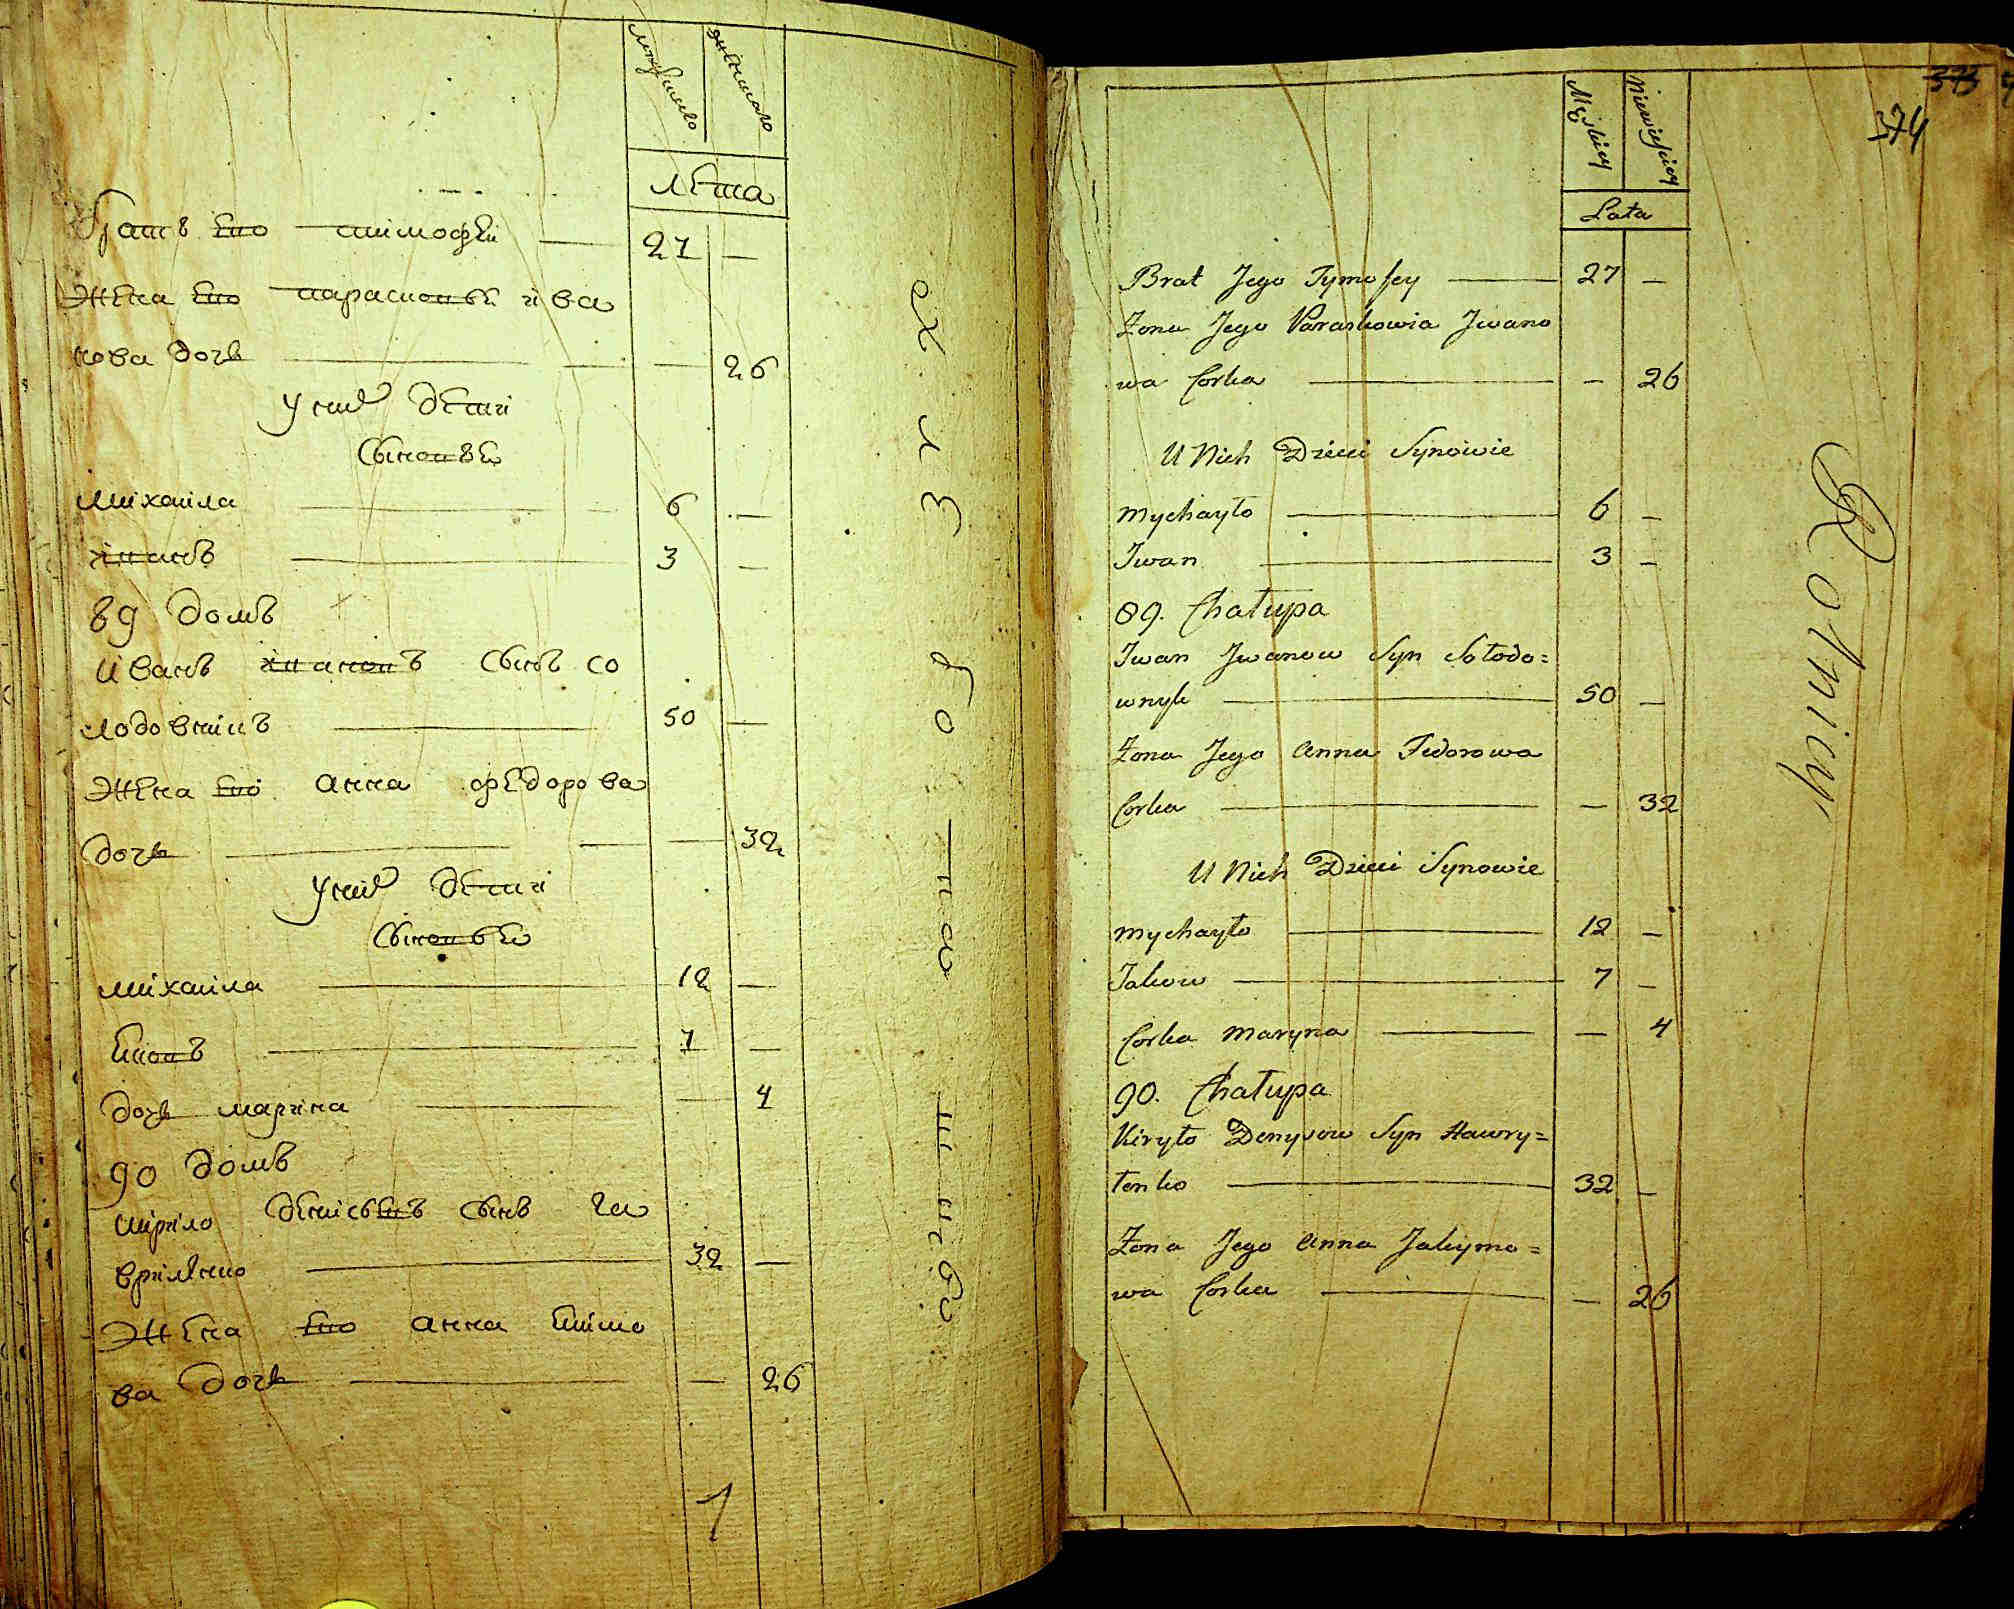 мужеско женско
лета
братъ его тимофей — 27 —
жена его парасковья ива
нова дочь — — 26
у них дети
сыновья
михайла — 6 —
иванъ — 3 —
89 домъ
иванъ ивановъ сынъ со
лодовникъ — 50 —
жена его анна федорова
дочь — — 32
у них дети
сыновья
михайла — 12 —
яковъ — 7 —
дочь марина — — 4
90 домъ
кирило денисовъ сынъ га
вриленко — 32 —
жена его анна якимо
ва дочь — — 26
хлзбопашцы
373
374
Męskiey Niewieściey
Lata
Brat Jego Tymofey — 27 —
Żona Jego Paraskowia Jwano
wa Corka — — 26
U Nich Dzieci Synowie
Mychayło — 6 —
Jwan — 3 —
89. Chałupa
Jwan Jwanow Syn Sołodo=
wnyk — 50 —
Żona Jego Anna Fedorowa
Corka — — 32
U Nich Dzieci Synowie
Mychayło — 12 —
Jakow — 7 —
Corka Maryna — — 4
90. Chałupa
Kiryło Denysow Syn Hawry=
lenko — 32 —
Żona Jego Anna Jakymo=
wa Corka — — 26
Rolnicy